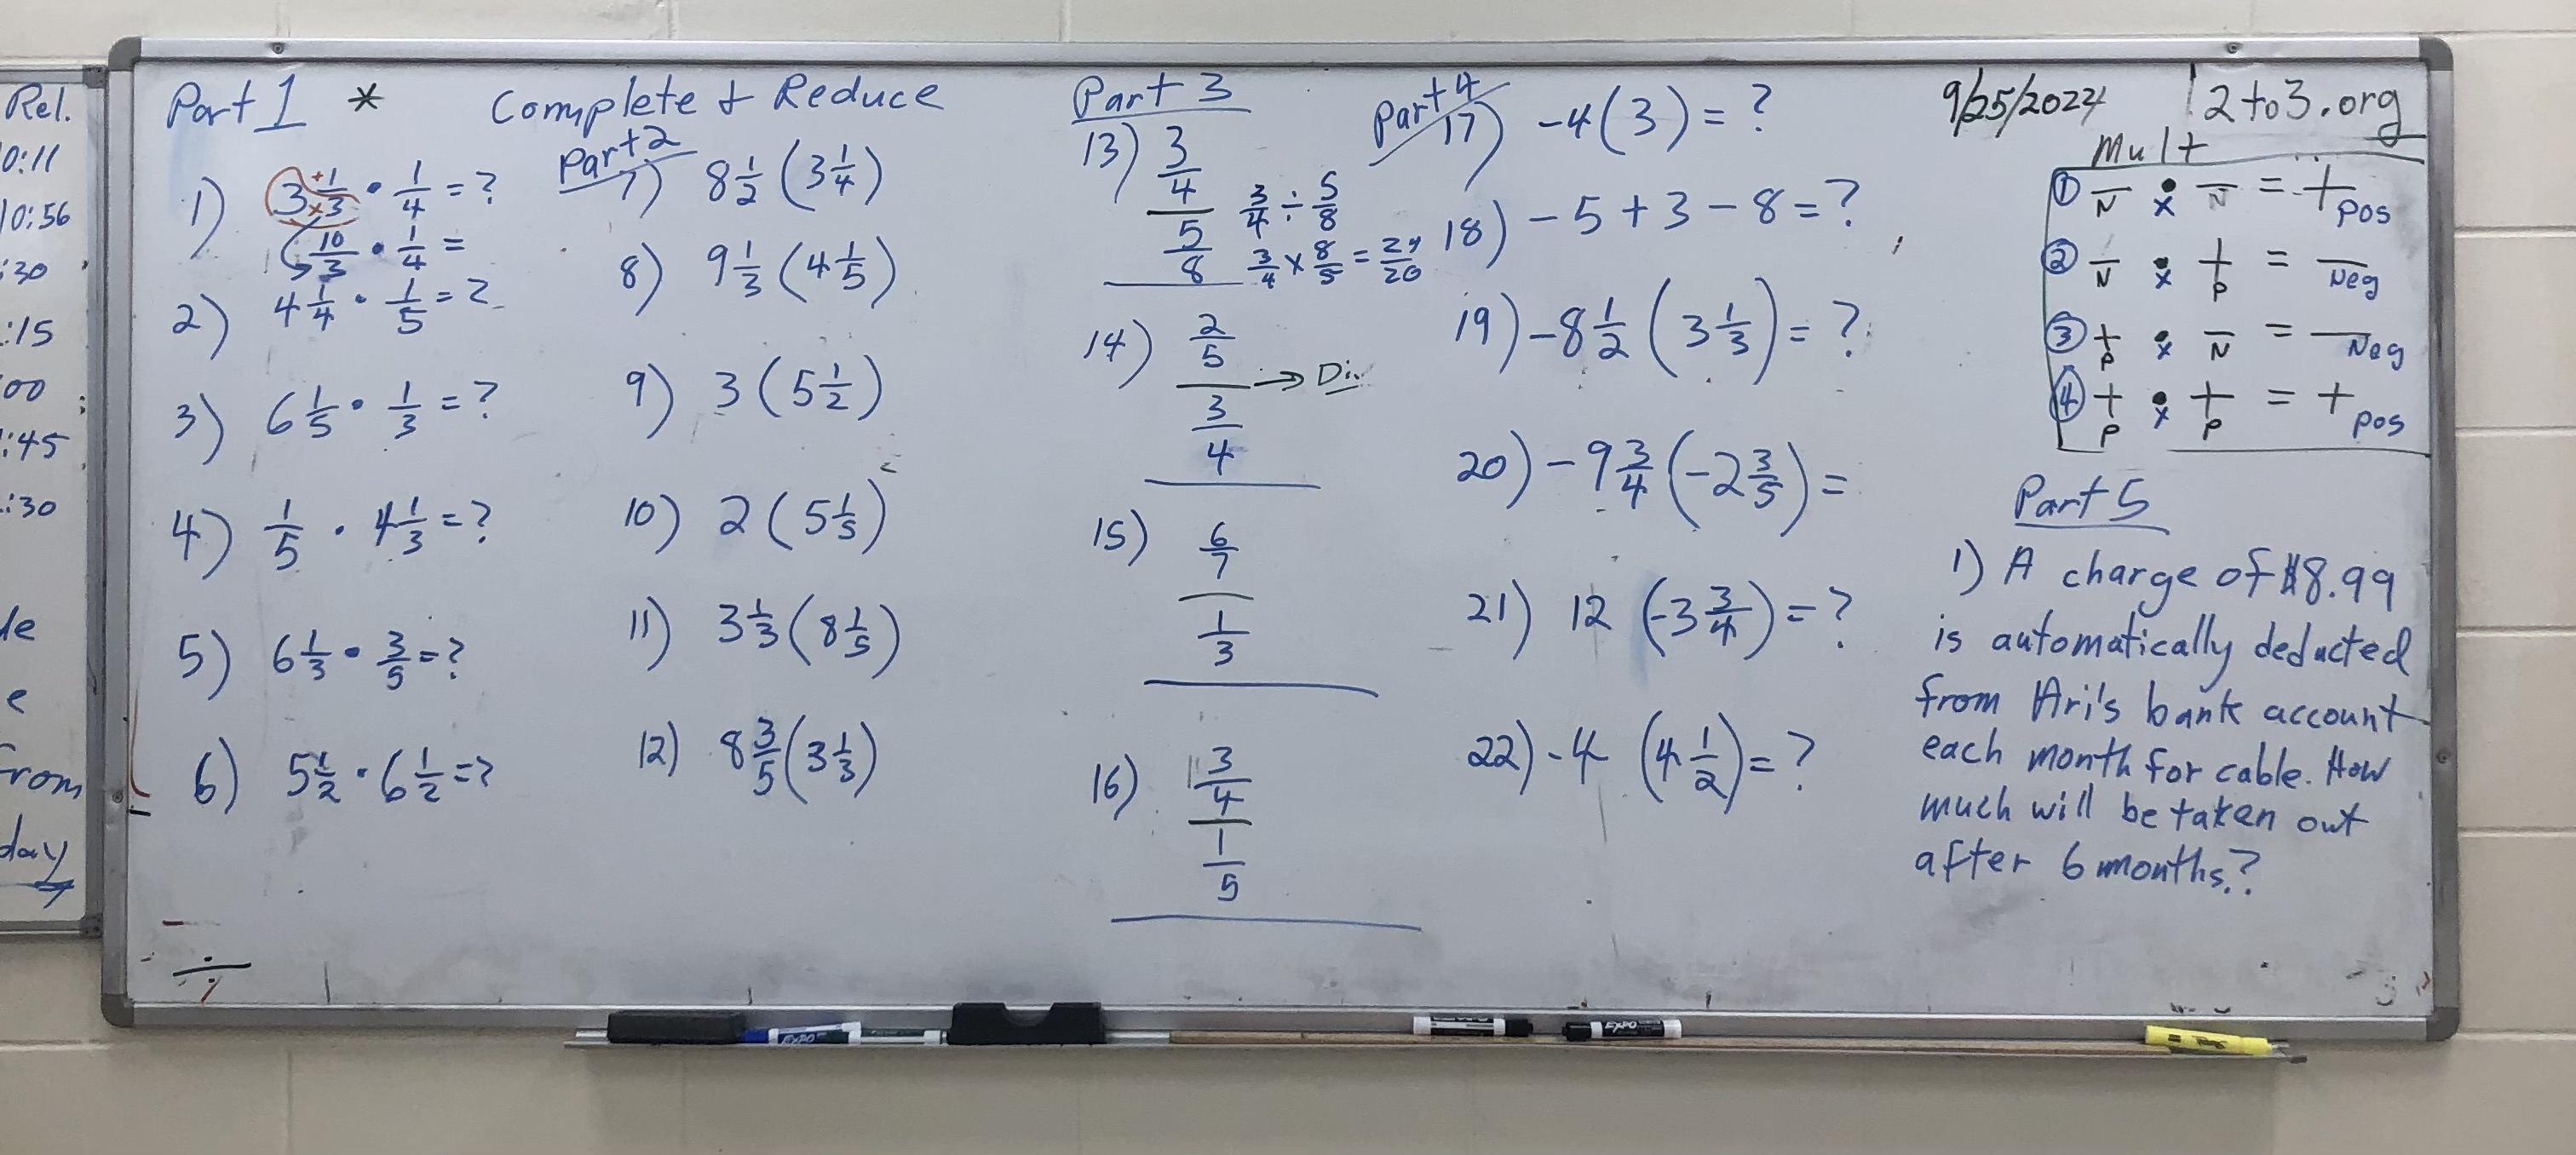 Rel.
0:11
10:56
:30
:15
00
:45
:30
le
e
from
day
Part 1 * Complete + Reduce
1) 3 1/3 • 1/4 = ?
+
x
10/3 • 1/4 =
2) 4 1/4 • 1/5 = ?
3) 6 1/5 • 1/3 = ?
4) 1/5 • 4 1/3 = ?
5) 6 1/3 • 3/5 = ?
6) 5 1/2 • 6 1/2 = ?
÷
Part 2
7) 8 1/2 (3 1/4)
8) 9 1/3 (4 1/5)
9) 3 (5 1/2)
10) 2 (5 1/5)
11) 3 1/3 (8 1/5)
12) 8 3/5 (3 1/3)
Part 3
13) 3/4 / 5/8
3/4 ÷ 5/8
3/4 x 8/5 = 24/20
14) 2/5 / 3/4 → Div
15) 6/7 / 1/3
16) 3/4 / 1/5
Part 4
17) -4 (3) = ?
18) -5 + 3 - 8 = ?
19) -8 1/2 (3 1/3) = ?
20) -9 3/4 (-2 3/5) =
21) 12 (-3 3/4) = ?
22) -4 (4 1/2) = ?
9/25/2024
2to3.org
Mult
① − N • x − N = + Pos
② − N • x + P = − Neg
③ + P • x − N = − Neg
④ + P • x + P = + Pos
Part 5
1) A charge of $8.99
is automatically deducted
from Ari's bank account
each month for cable. How
much will be taken out
after 6 months?
EXPO
EXPO